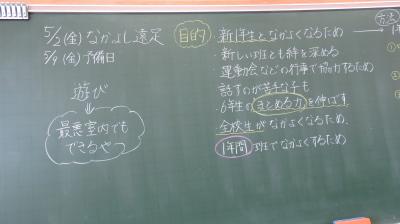 5/2(金)なかよし遠足
5/9(金)予備日
遊び
最悪室内でも
できるやつ
目的
・新1年生となかよくなるため
・新しい班とも絆を深める
・運動会などの行事で協力するため
話すのが苦手な子も
・6年生のまとめる力を伸ばす
全校生がなかよくなるため、
1年間班でなかよくするため
方法